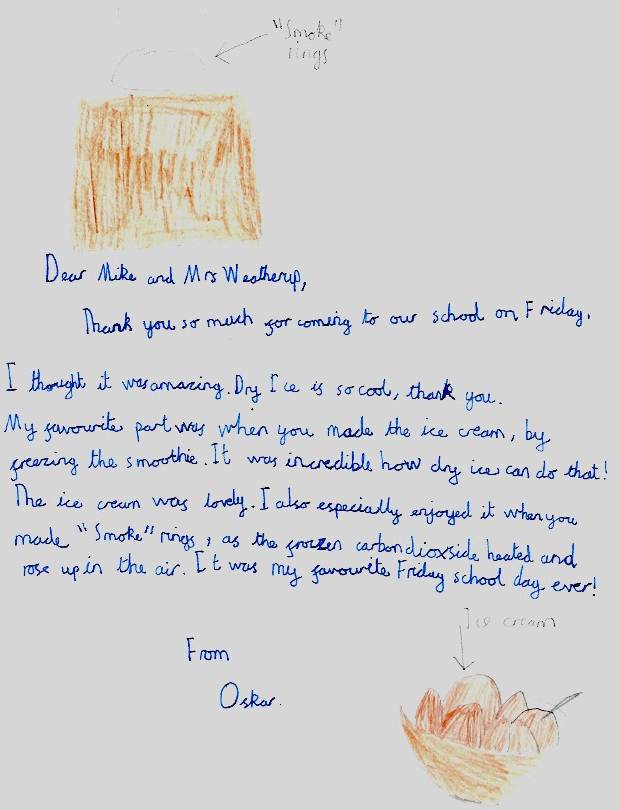 "Smoke"
rings
Dear Mike and Mrs Weatherup,
Thank you so much for coming to our school on Friday.
I thought it was amazing. Dry Ice is so cool, thank you.
My favourite part was when you made the ice cream, by
freezing the smoothie. It was incredible how dry ice can do that!
The ice cream was lovely. I also especially enjoyed it when you
made "Smoke" rings, as the frozen carbon dioxside heated and
rose up in the air. It was my favourite Friday school day ever!
Ice cream
From
Oskar.